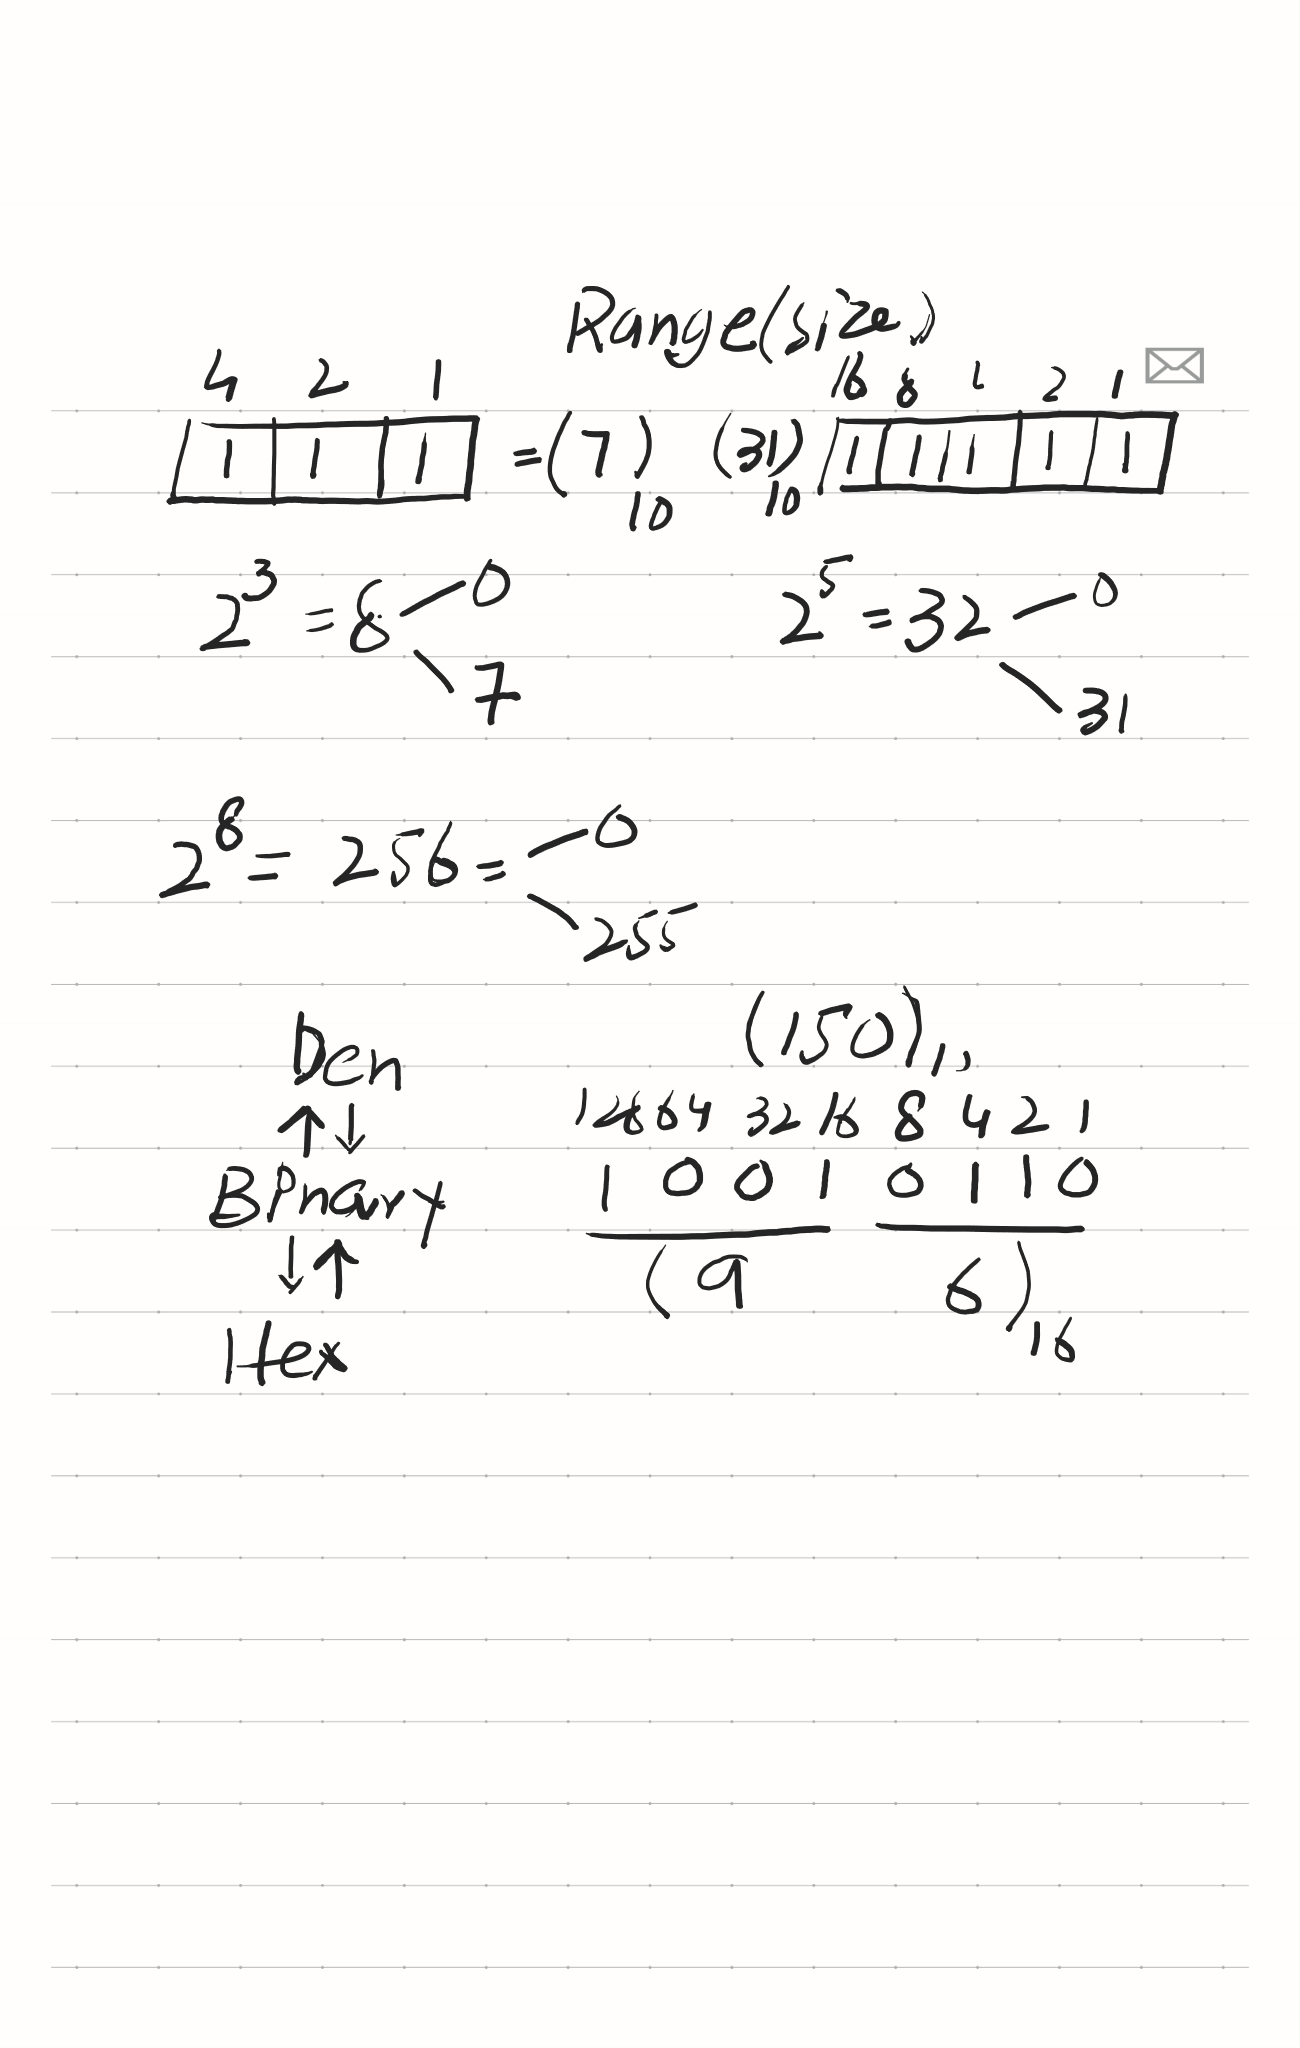 Range(size)
4 2 1
16 8 4 2 1
1 1 1 =(7)10
(31)10 1 1 1 1 1
2^3 =8 0
7
2^5 =32 0
31
2^8 = 256 = 0
255
Den
Binary
Hex
(150)10
128 64 32 16 8 4 2 1
1 0 0 1 0 1 1 0
(9 6)16